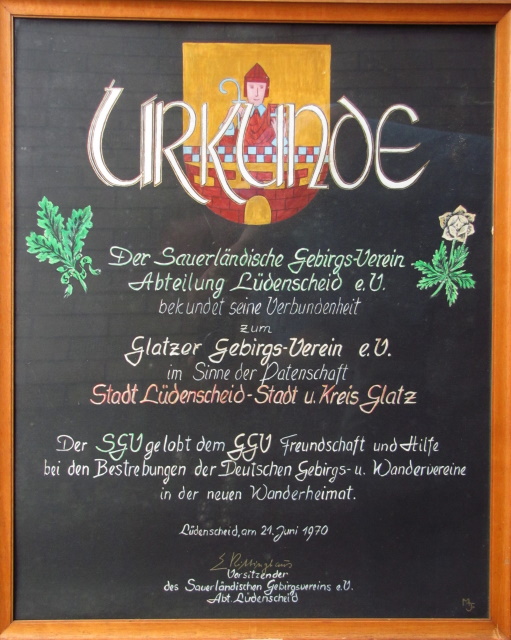 URKUNDE
Der Sauerländische Gebirgs-Verein
Abteilung Lüdenscheid e.V.
bekundet seine Verbundenheit
zum
Glatzer Gebirgs-Verein e.V.
im Sinne der Patenschaft
Stadt Lüdenscheid-Stadt u. Kreis Glatz
Der SGV gelobt dem GGV Freundschaft und Hilfe
bei den Bestrebungen der Deutschen Gebirgs- u. Wandervereine
in der neuen Wanderheimat.
Lüdenscheid, am 21. Juni 1970
Vorsitzender
des Sauerländischen Gebirgsvereins e.V.
Abt. Lüdenscheid